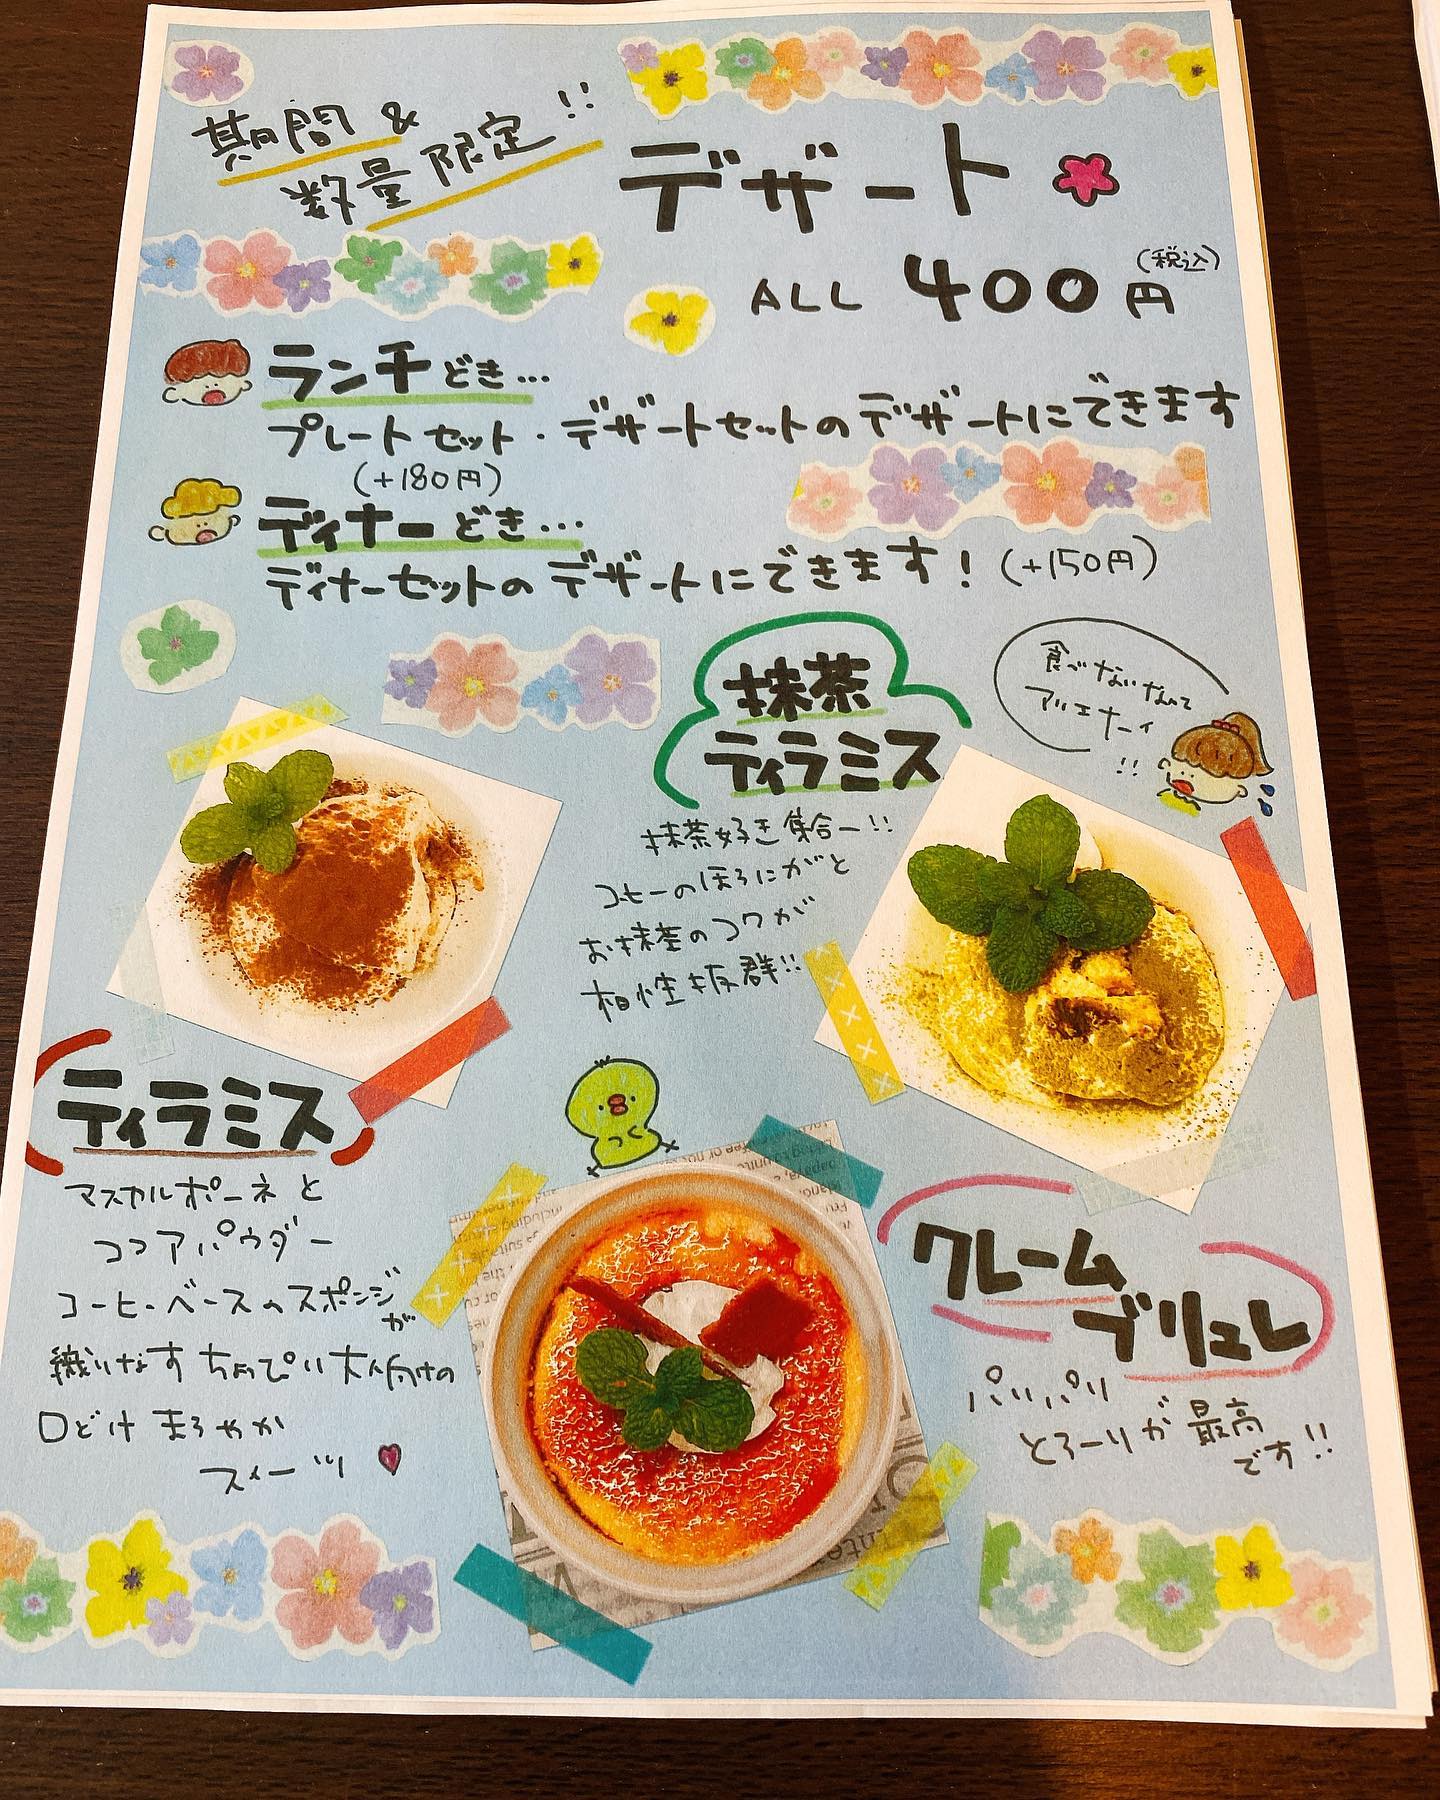 期間&
数量限定!!
デザート
ALL 400円(税込)
ランチどき…
プレートセット・デザートセットのデザートにできます
(+180円)
ディナーどき…
ディナーセットのデザートにできます!(+150円)
抹茶
ティラミス
食べないなんて
アリエナーイ
!!
抹茶好き集合ー!!
コーヒーのほろにがと
お抹茶のコクが
相性抜群!!
ティラミス
マスカルポーネと
ココアパウダー
コーヒーベースのスポンジが
織りなすちょっぴり大人向けの
口どけまろやか
スイーツ
クレーム
ブリュレ
パリパリ
とろーりが最高
です!!